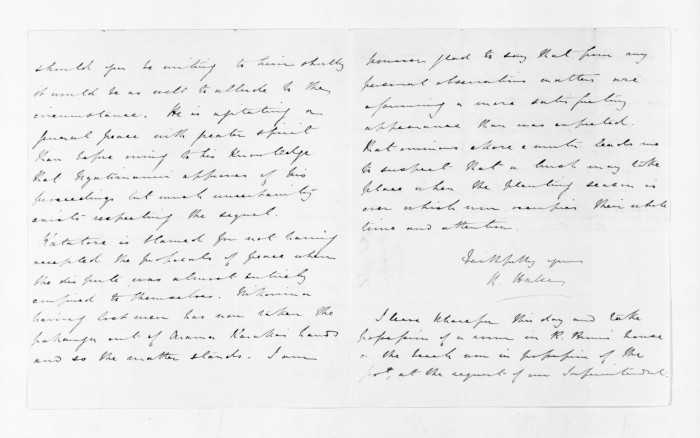 should you be writing to him shortly
it would be as well to allude to the
circumstance. He is agitating a
general peace with greater spirit
than before owing to his knowledge
that Ngatimaniapoto approves of his
proceedings but much uncertainty
exists respecting the sequel.
Katatore is blamed for not having
accepted the proposals of peace when
the dispute was almost entirely
confined to themselves. Nikorima
having lost men has now taken the
pakanga out of Arama Karakas hands
and so the matter stands. I am
however glad to say that from my
personal observation matters are
assuming a more satisfactory
appearance than was expected.
leads me
to suspect that a brush may take
place when the planting season is
over which now occupies their whole
time and attention.
Faithfully yours
H. Halse
I leave this day and take
possession of a room in house
on the beach now in possession of the
at the request of our Superintendent.